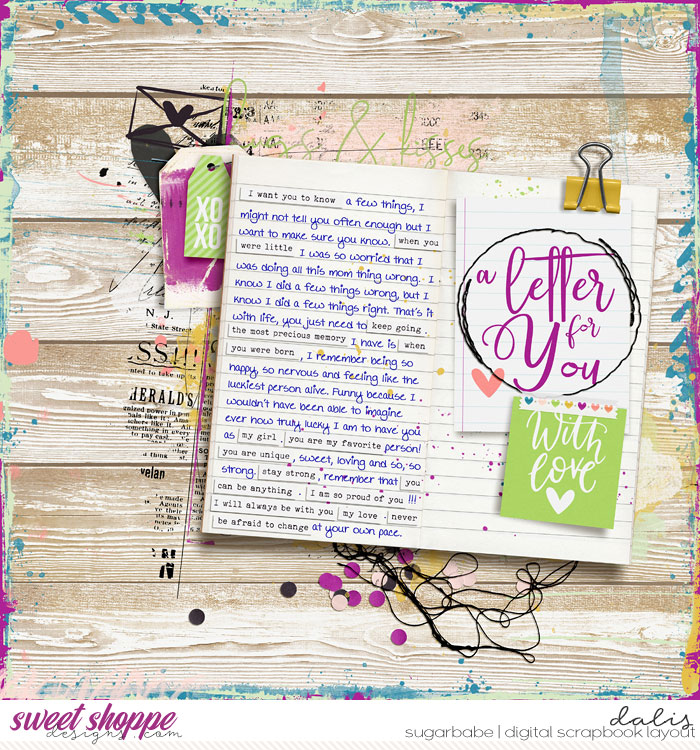 hugs & kisses
XO
XO
I want you to know a few things, I
might not tell you often enough but I
want to make sure you know. when you
were little I was so worried that I
was doing all this mom thing wrong. I
know I did a few things wrong, but I
know I did a few things right. That's it
with life, you just need to keep going.
the most precious memory I have is when
you were born, I remember being so
happy, so nervous and feeling like the
luckiest person alive. Funny because I
wouldn't have been able to imagine
ever how truly lucky I am to have you
as my girl. you are my favorite person!
you are unique, sweet, loving and so, so
strong. stay strong, remember that you
can be anything. I am so proud of you!!!
I will always be with you my love. never
be afraid to change at your own pace.
a
letter
for
You
With
love
N. J.
State Street
SS!!!
HERALD'S
velan
sweet shoppe
designs.com
dalis
sugarbabe | digital scrapbook layout